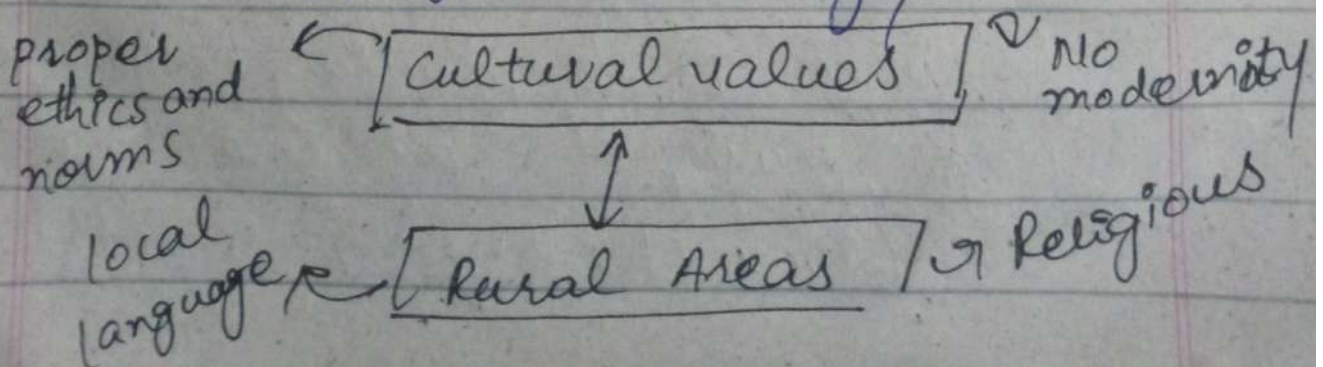 proper
ethics and
norms
Cultural values
No
modernity
local
language
Rural Areas
Religious